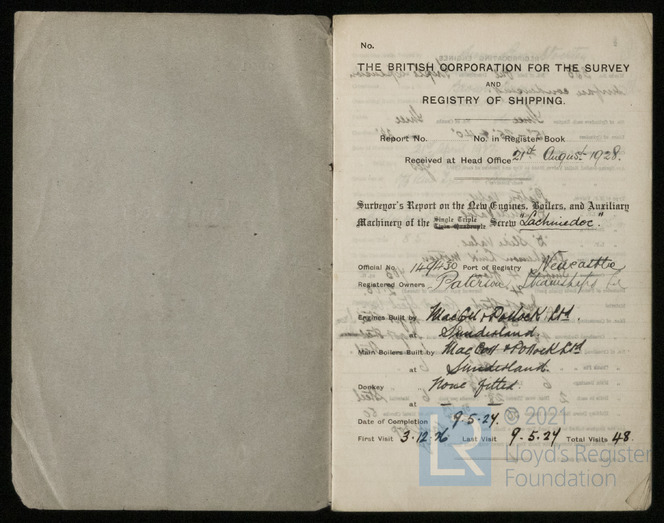 No.
THE BRITISH CORPORATION FOR THE SURVEY
AND
REGISTRY OF SHIPPING.
Report No. No. in Register Book
Received at Head Office 21st August 1928.
Surveyor's Report on the New Engines, Boilers, and Auxiliary
Machinery of the Single Triple Twin Quadruple Screw "Lachinedoc"
Official No. 149430 Port of Registry Newcastle
Registered Owners Paterson Steamships Ld
Engines Built by MacColl & Pollock Ltd.
at Sunderland
Main Boilers Built by MacColl & Pollock Ltd
at Sunderland.
Donkey None fitted
at
Date of Completion 9.5.27.
First Visit 3.12.26 Last Visit 9.5.27 Total Visits 48.
LR © 2021
Lloyd's Register
Foundation